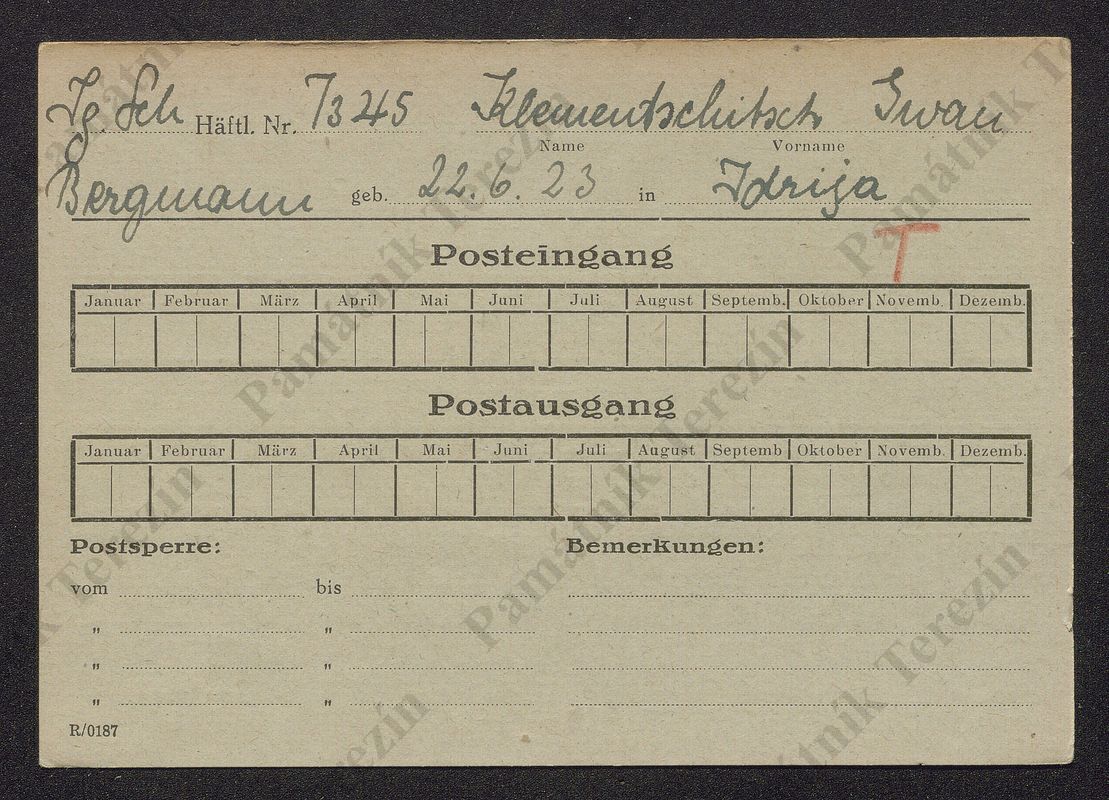 Jg. Sch Häftl. Nr. 7345 Klementschitsch Iwan
Name Vorname
Bergmann geb. 22.6.23 in Idrija
T
Posteingang
Januar Februar März April Mai Juni Juli August Septemb. Oktober Novemb. Dezemb.
Postausgang
Januar Februar März April Mai Juni Juli August Septemb Oktober Novemb. Dezemb.
Postsperre: Bemerkungen:
vom bis
„ „
„ „
„ „
R/0187
Památník Terezín